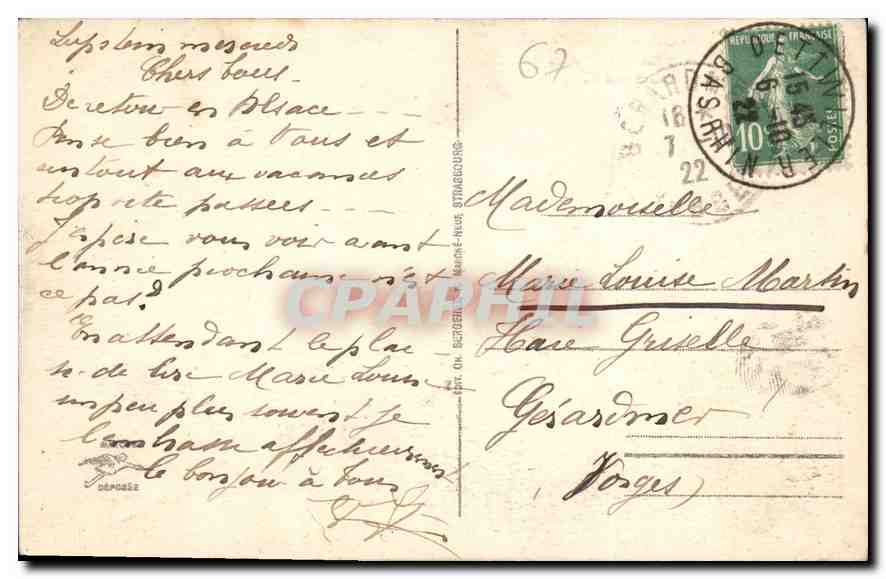 Lupstein mercredi
Chers tous
De retour en Alsace
Pense bien à Vous et
surtout aux vacances
trop vite passées
J'espère vous voir avant
l'année prochaine n'est
ce pas?
En attendant le plai
sir de lire Marie Louise
un peu plus souvent je
l'embrasse affectueusement
le bonjour à tous
DÉPOSÉE
EDIT. CH. BERGERET, MARCHÉ-NEUF, STRASBOURG
67
RÉPUBLIQUE FRANÇAISE
10c
POSTES
DETTWILLER
15-45
6-10
22
BAS RHIN
GERARDMER
16
7
22
Mademoiselle
Marie Louise Martin
Haie Griselle
Gérardmer
(Vosges)
CPAPHIL